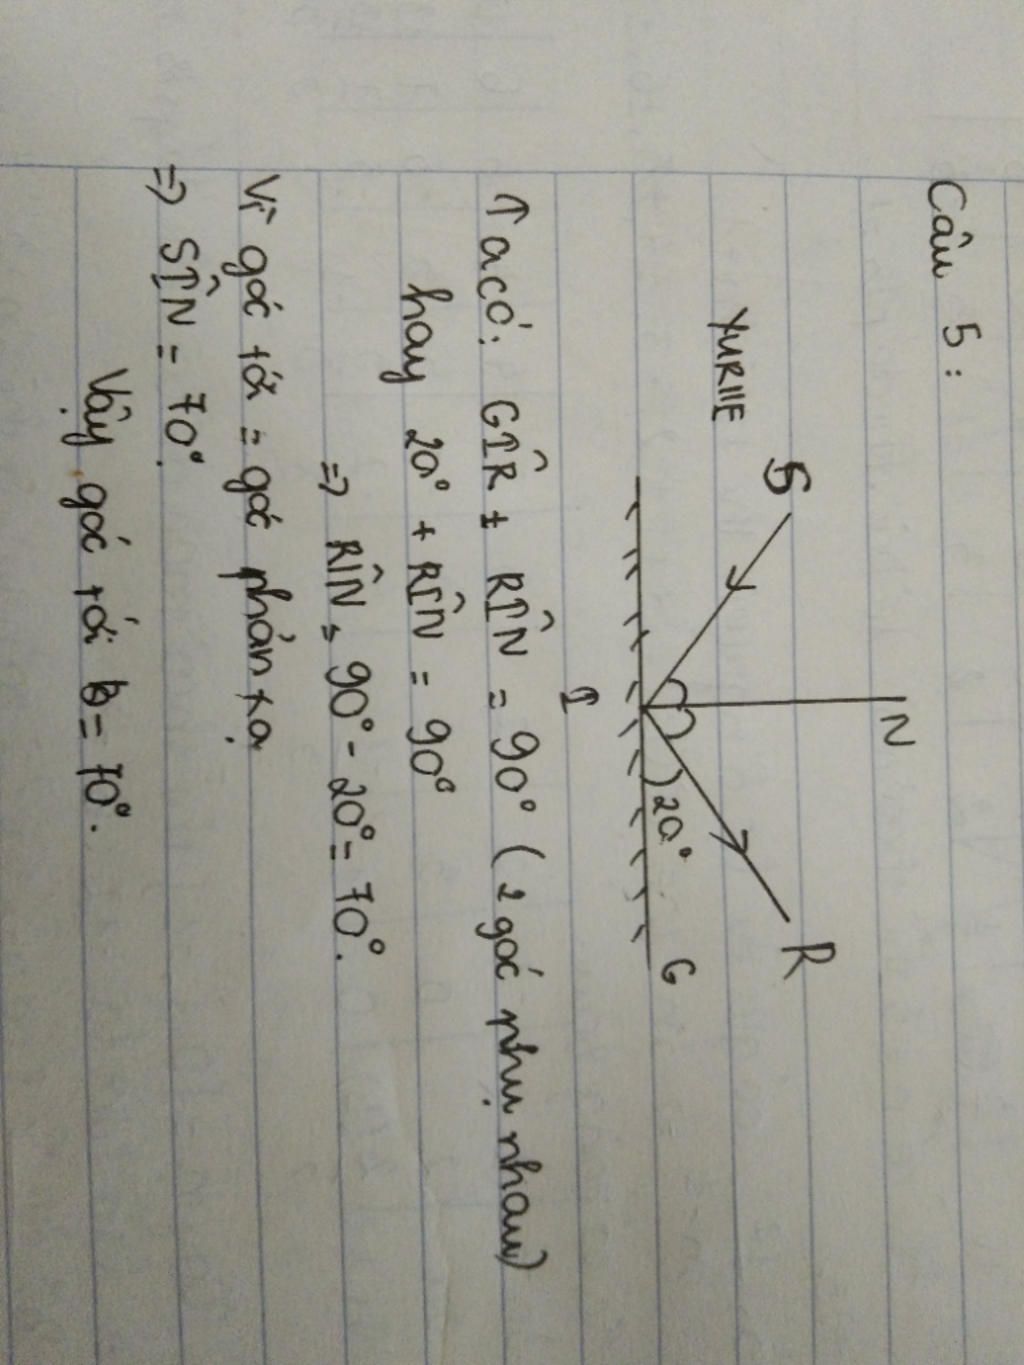 Câu 5:
N
S
R
YURIIE
20°
G
I
Ta có: GÎR + RÎN = 90° (2 góc phụ nhau)
hay 20° + RÎN = 90°
=> RÎN = 90° - 20° = 70°.
Vì góc tới = góc phản xạ
=> SÎN = 70°.
Vậy góc tới là = 70°.